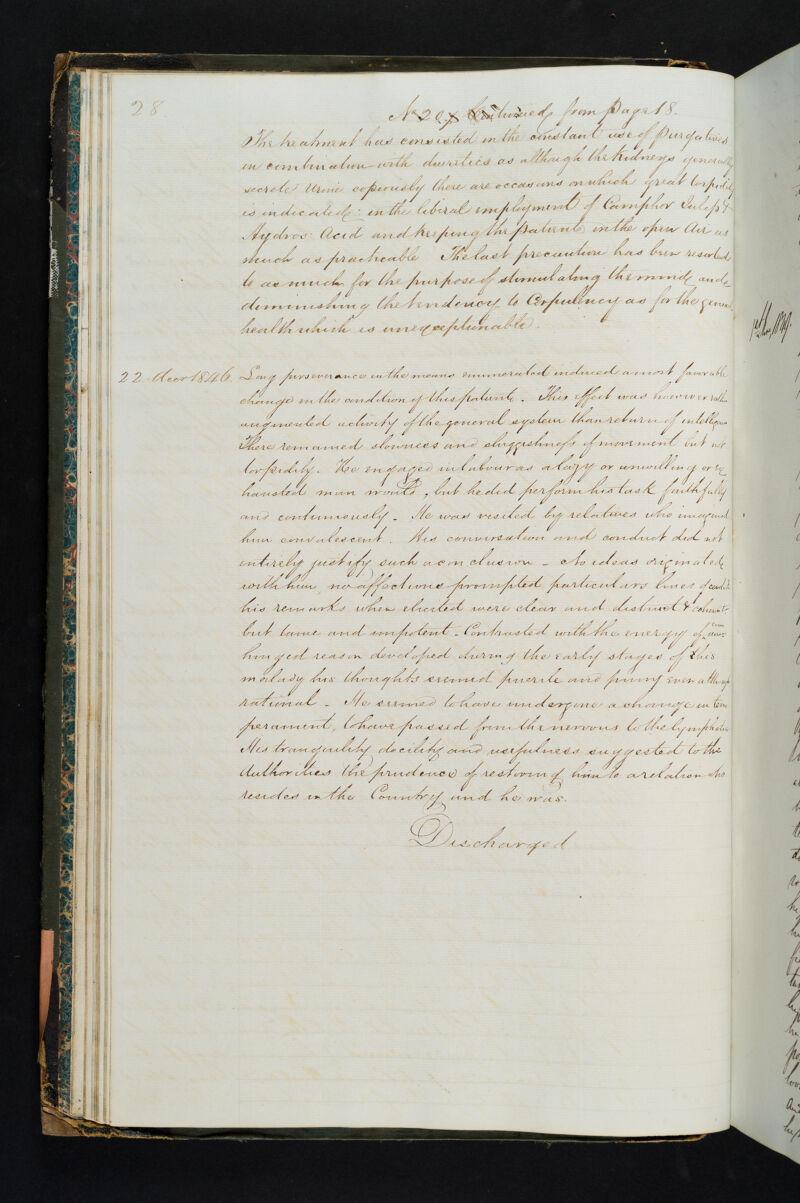 28
No 297 Continued from Page 18.
The treatment has consisted in the constant use of Purgatives
in combination with diuretics as although the Kidneys generally
secrete Urine copiously there are occasions on which great torpidity
is indicated: in the liberal employment of Camphor Julep &
Hydros: Acid and keeping the patient in the open Air as
much as practicable The last precaution has been resorted
to as much for the purpose of stimulating the mind and
diminishing the tendency to Corpulency as for the general
health which is unexceptionable.
22 Decr 1846. Long perseverance in the means enumerated induced a most favorable
change in the condition of this patient. This effect was however rather
augmented activity of the general system than return of intelligence
There remained slowness and sluggishness of movement but not
torpidity. He engaged in labour as a lazy or unwilling or ex
hausted man would, but he did perform his task faithfully
and continuously. He was visited by relatives who imagined
him convalescent. His conversation and conduct did not
entirely justify such a conclusion - No ideas originated
with him, no affections prompted particular lines of conduct
his remarks when elicited were clear and distinct & coherent
but tame and impotent. Contrasted with the energy of
hinged reason developed during the early stages of this
malady his thoughts seemed puerile and puny even although
rational - He seemed to have undergone a change in tem
perament, to have passed from the nervous to the lymphatic
His tranquility docility and usefulness suggested to the
Authorities the prudence of restoring him to a relation who
resides in the Country and he was.
Discharged